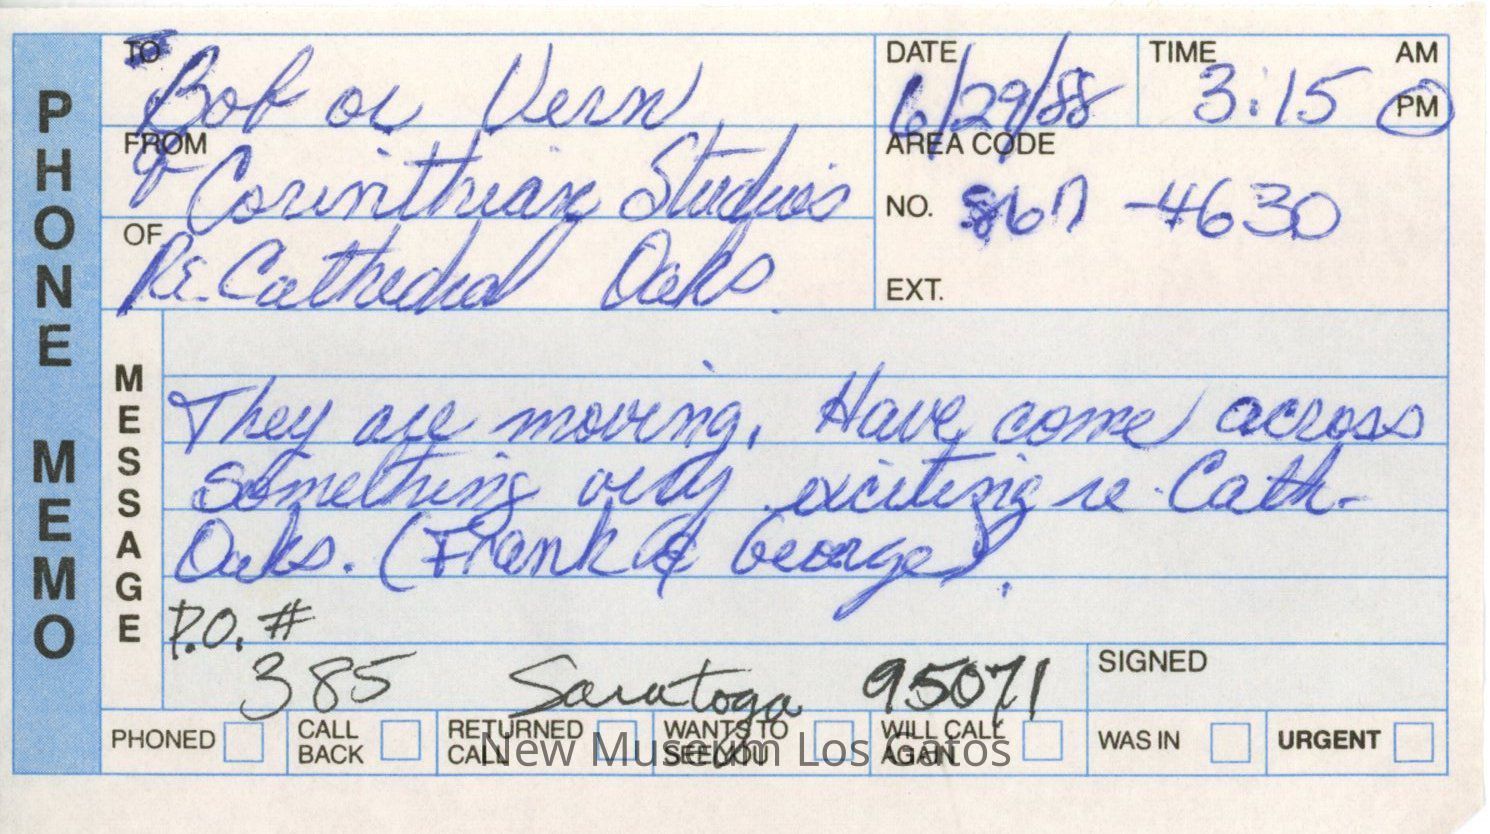 PHONE MEMO
TO Bob or Vern
DATE 6/29/88
TIME 3:15 AM PM
FROM Corinthian Studios
AREA CODE
NO. 867-4630
OF Re. Cathedral Oaks
EXT.
MESSAGE
They are moving. Have come across
something very exciting re. Cath.
Oaks. (Frank & George).
P.O. #
385 Saratoga 95071
SIGNED
PHONED CALL BACK RETURNED CALL WANTS TO SEE YOU WILL CALL AGAIN WAS IN URGENT
New Museum Los Gatos